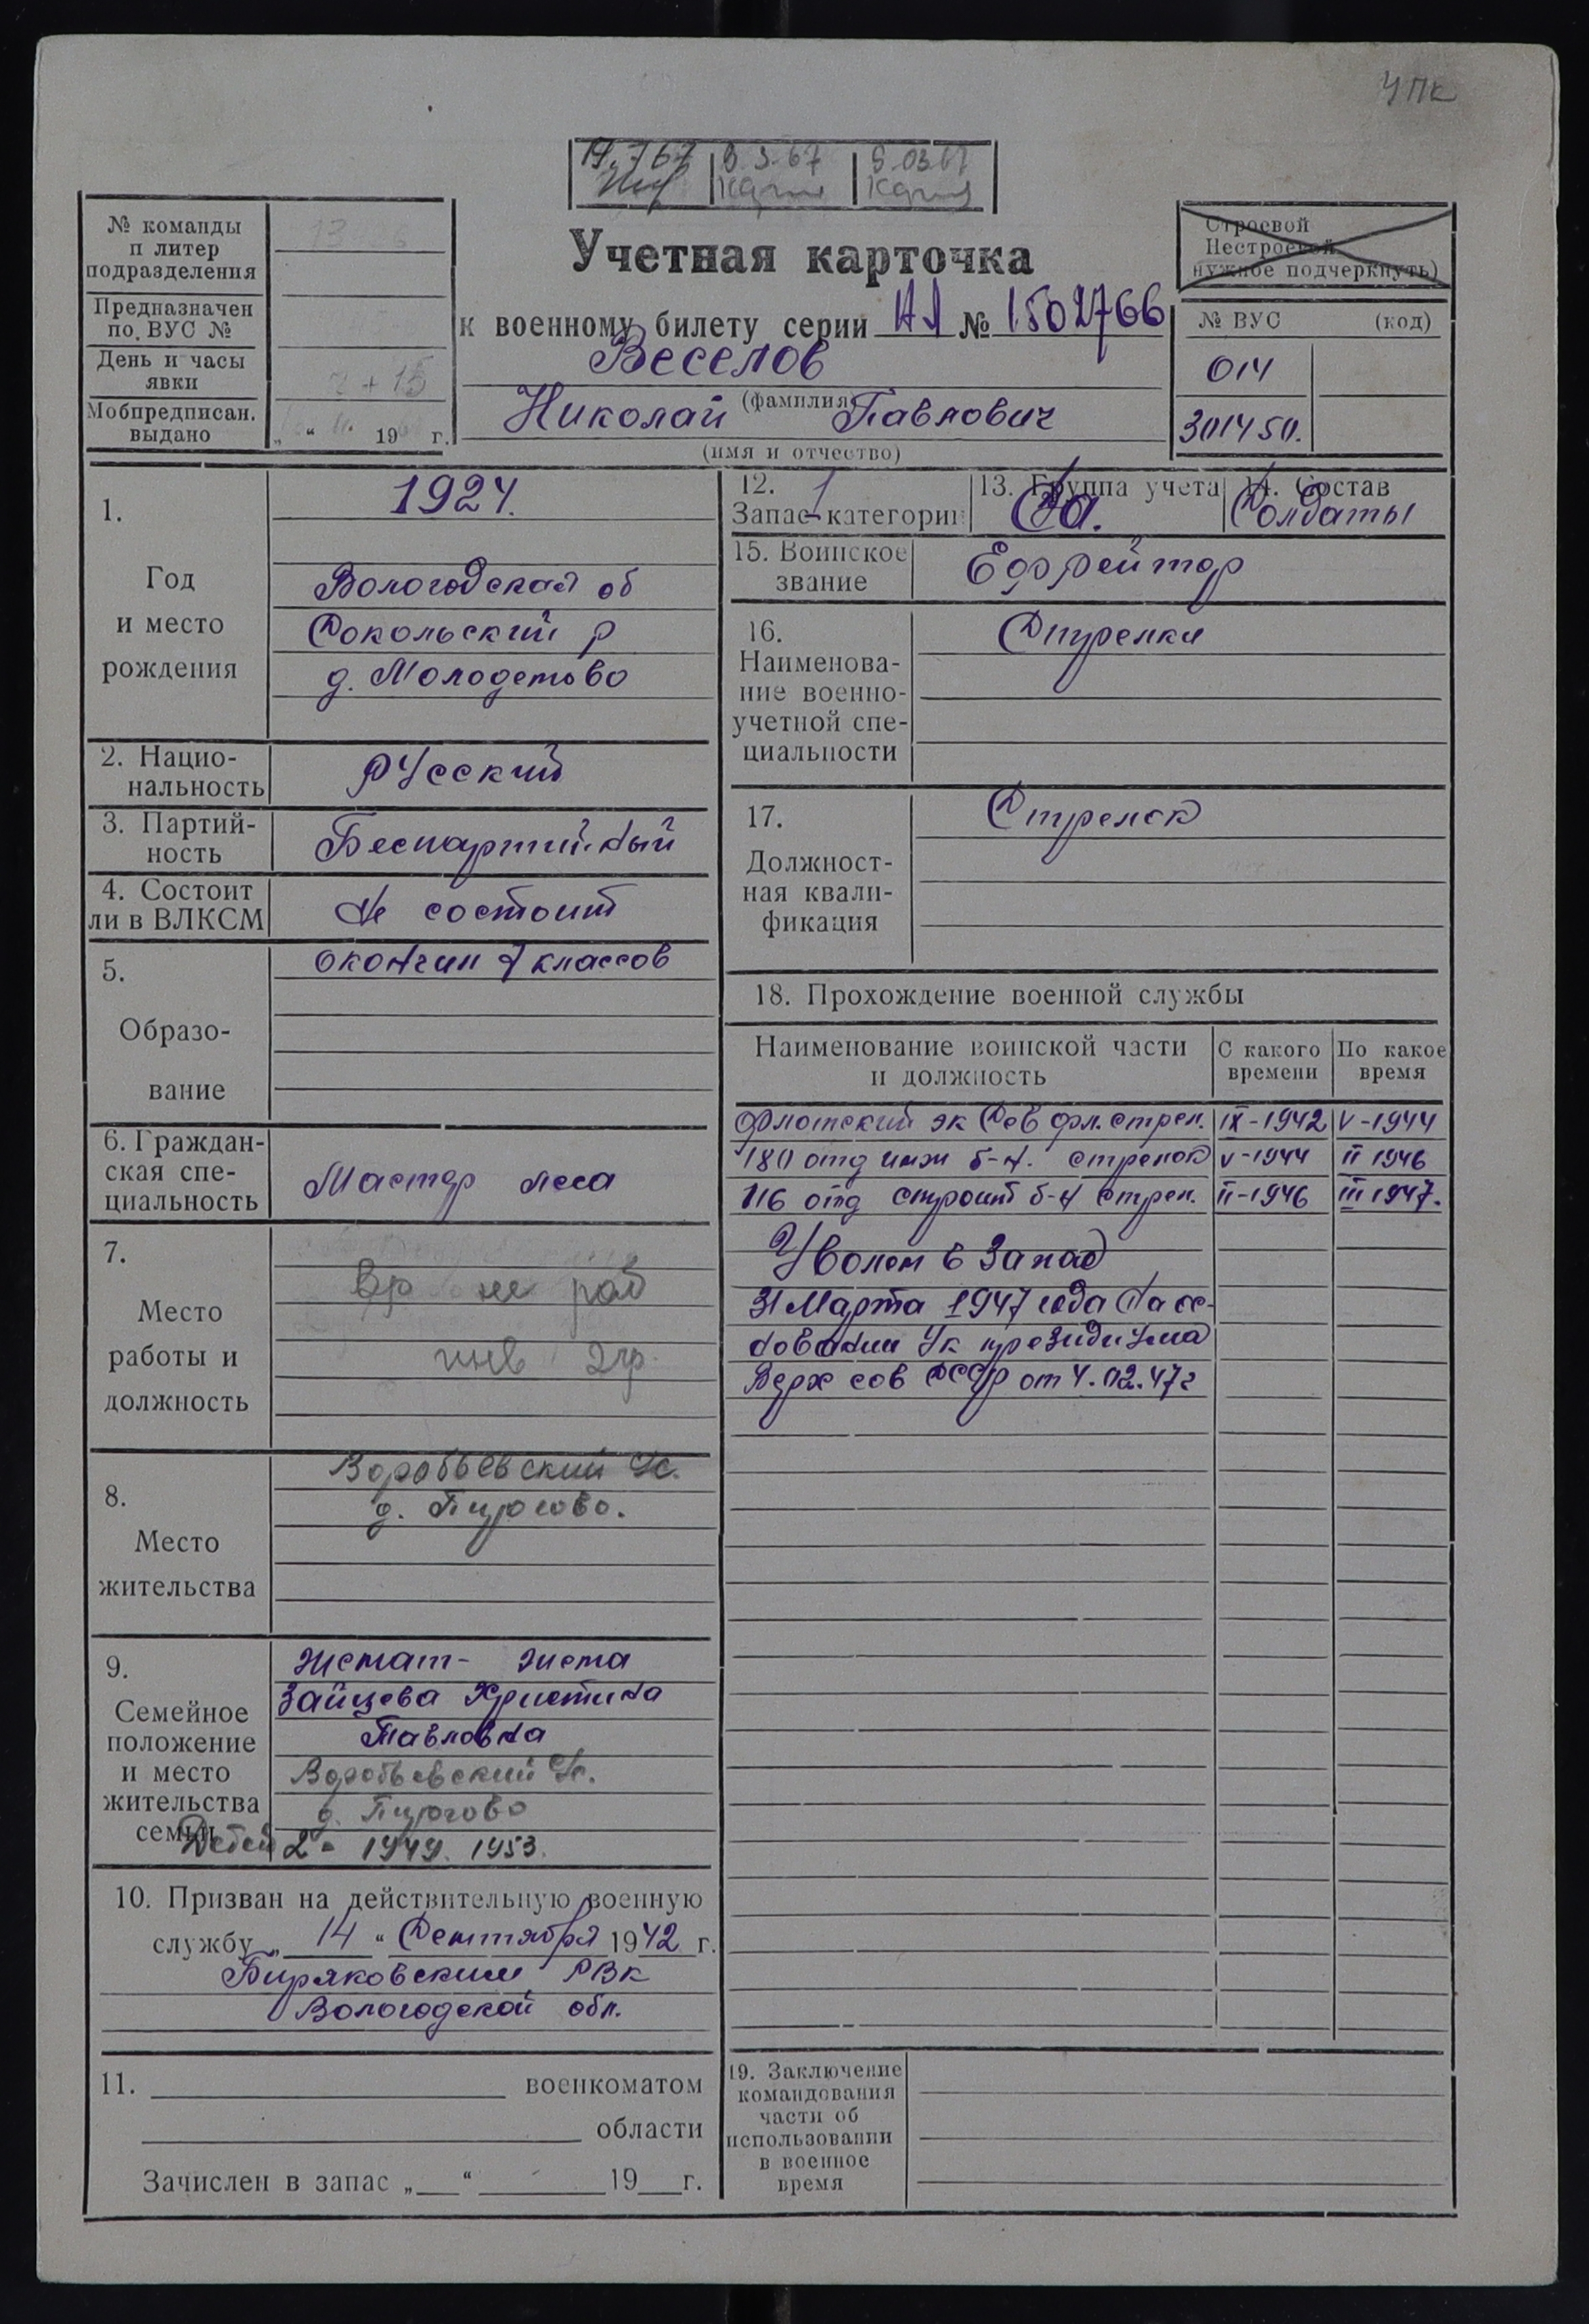 УПК
19.7 67 3.3.67 5.03.67
№ команды
п литер
подразделения
Предназначен
по. ВУС №
День и часы
явки
ч + 15
Мобпредписан.
выдано
„ “ 19 г.
Учетная карточка
к военному билету серии НЯ № 1502766
Веселов
(фамилия)
Николай Павлович
(имя и отчество)
Строевой
Нестроевой
нужное подчеркнуть)
№ ВУС (код)
014
301450.
1.
Год
и место
рождения
1924.
Вологодская об
Сокольский р
д. Молодетово
2. Нацио-
нальность
Русский
3. Партий-
ность
Беспартийный
4. Состоит
ли в ВЛКСМ
Не состоит
5.
Образо-
вание
окончил 7 классов
6. Граждан-
ская спе-
циальность
Мастер леса
7.
Место
работы и
должность
Вр не раб
инв 2гр.
8.
Место
жительства
Воробьевский с/с.
д. Пирогово.
9.
Семейное
положение
и место
жительства
семьи
женат - жена
Зайцева Христина
Павловна
Воробьевский с/с.
д. Пирогово
Детей 2 - 1949. 1953.
10. Призван на действительную военную
службу „ 14 “ Сентября 1942 г.
Биряковским РВК
Вологодской обл.
11. военкоматом
области
Зачислен в запас „ “ 19 г.
12. 1
Запас категории
13. Группа учета
Са.
14. Состав
Солдаты
15. Воинское
звание
Ефрейтор
16.
Наименова-
ние военно-
учетной спе-
циальности
Стрелки
17.
Должност-
ная квали-
фикация
Стрелок
18. Прохождение военной службы
Наименование воинской части
и должность
С какого
времени
По какое
время
Флотский эк Сев фл. стрел. IX-1942 V-1944
180 отд инж б-н. стрелок V-1944 II 1946
116 отд строит б-н стрел. II-1946 III 1947.
Уволен в запас
31 Марта 1947 года На ос-
новании Ук президиума
Верх сов СССР от 4.02.47г
19. Заключение
командования
части об
использовании
в военное
время